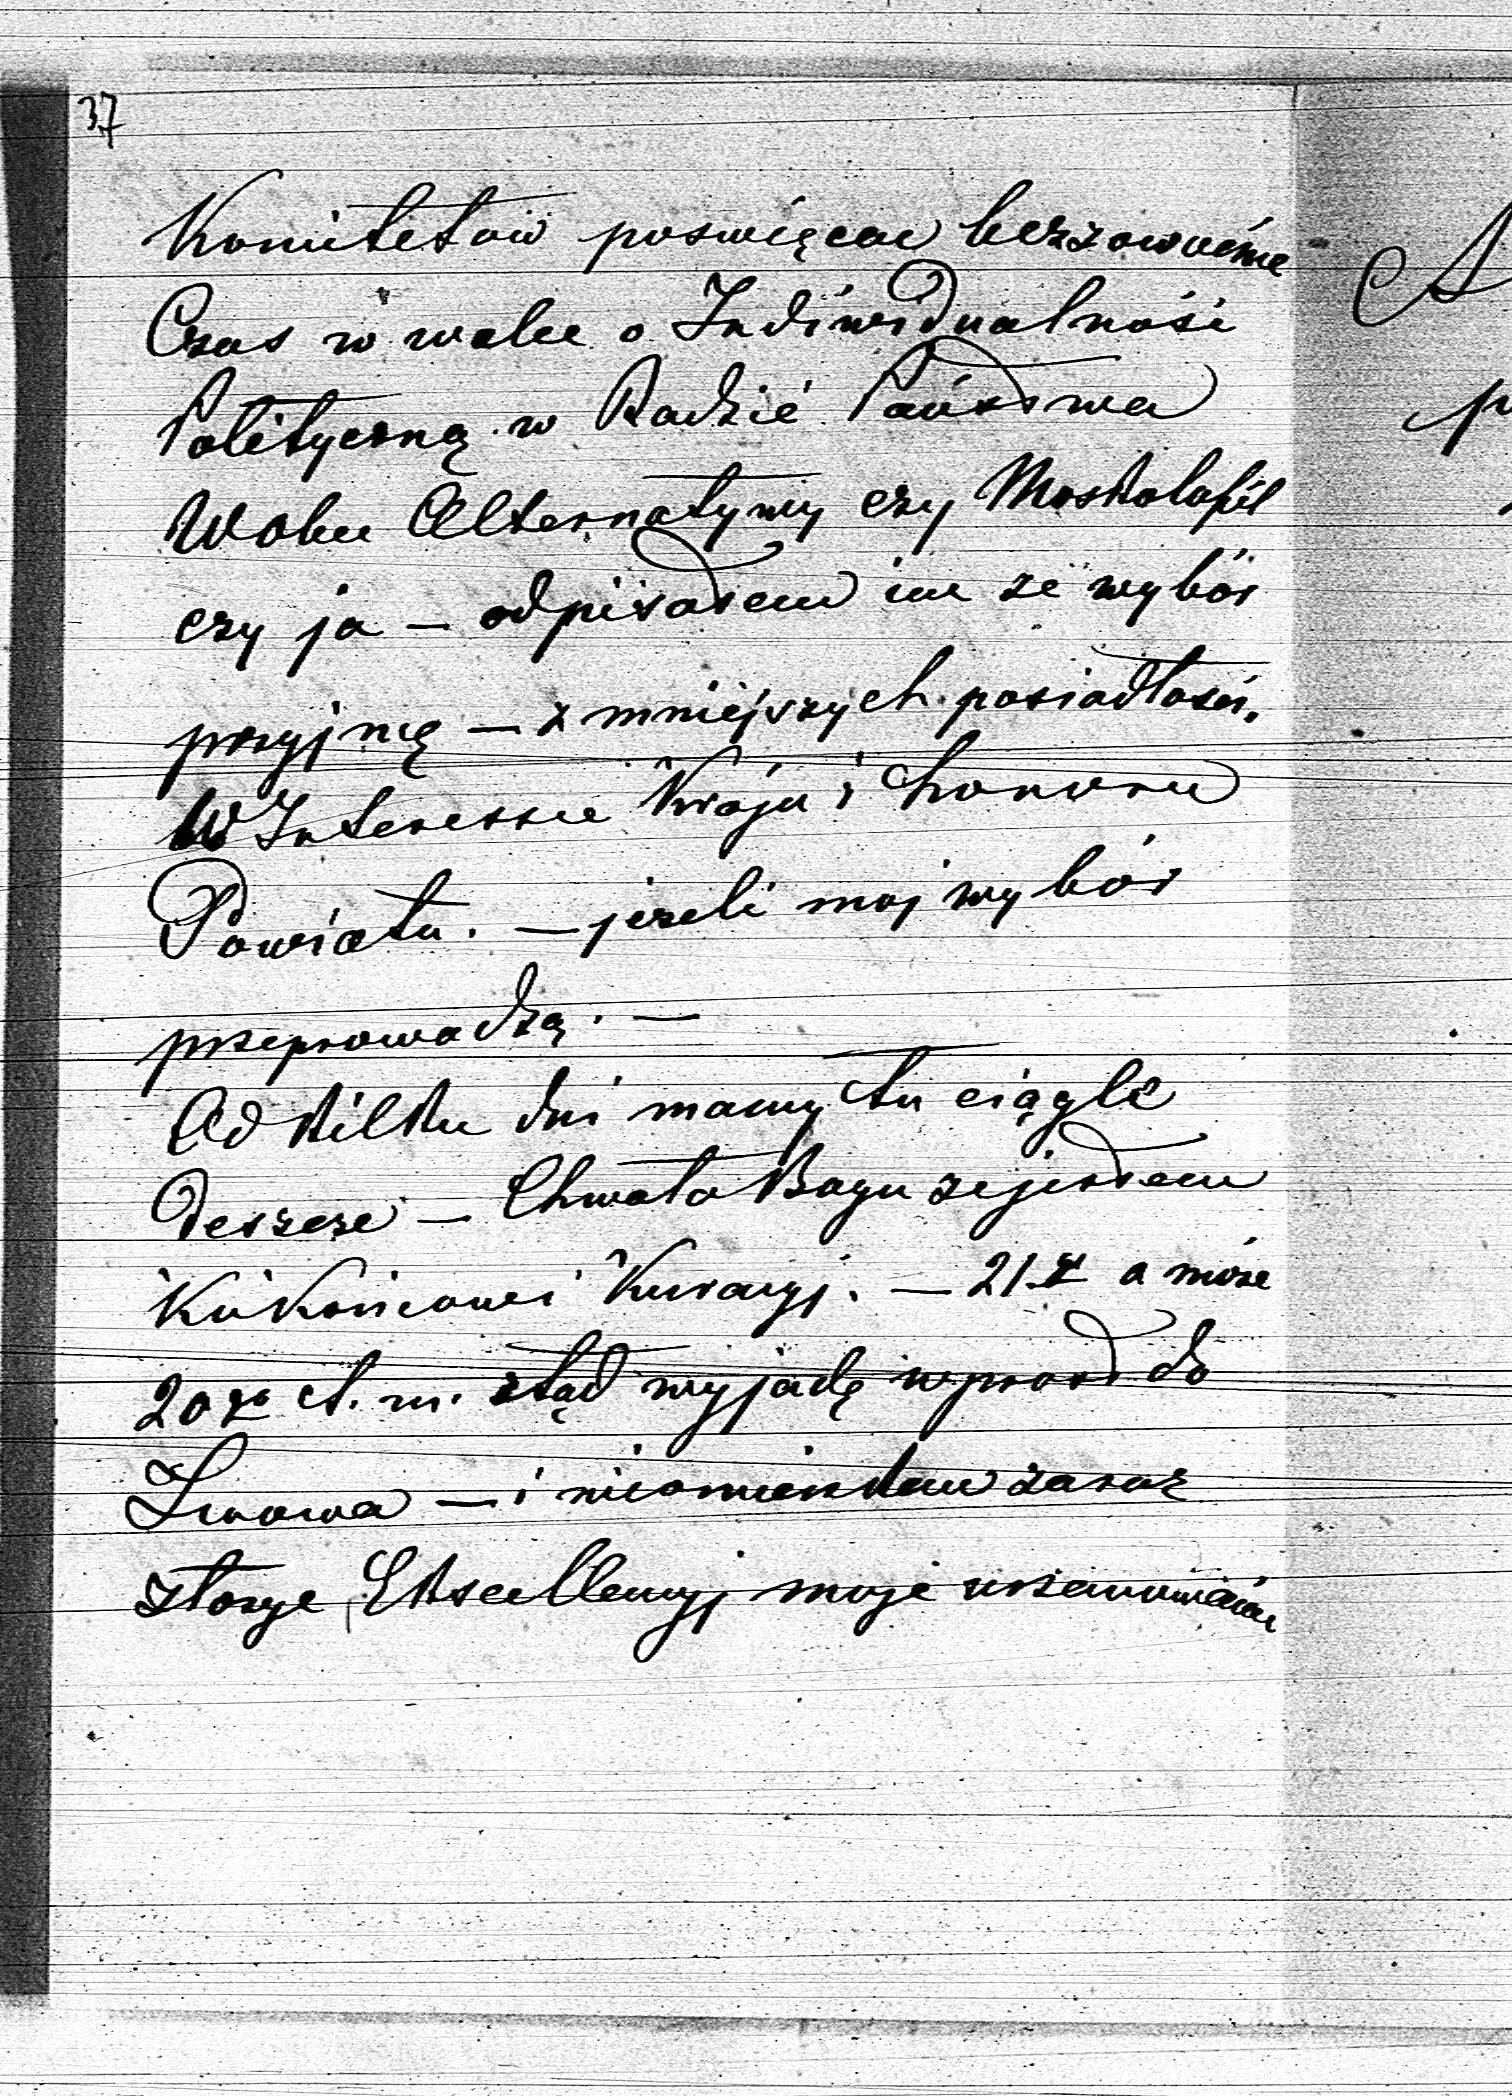 37
Komitetów poswięcac bezzowocnie
Czas w walce o Indiwidualność
Polityczną w Radzie Państwa
Wobec Alternatywy czy Moskalofil
czy ja — odpisałem im ze wybór
przyjmę — z mniejszych posiadłości.
W Interessie Kraju i honoru
Powiatu. — jezeli moj wybór
przeprowadzą. —
Od kilku dni mamy tu ciągle
deszcze — Chwała Bogu ze jestem
Ku Końcowi Kuracyj. — 21 a może
20 t. m. ztąd wyjadę wprost do
Lwowa — i nieomieszkam zaraz
złozyc Ekscellencyj moje uszanowanie